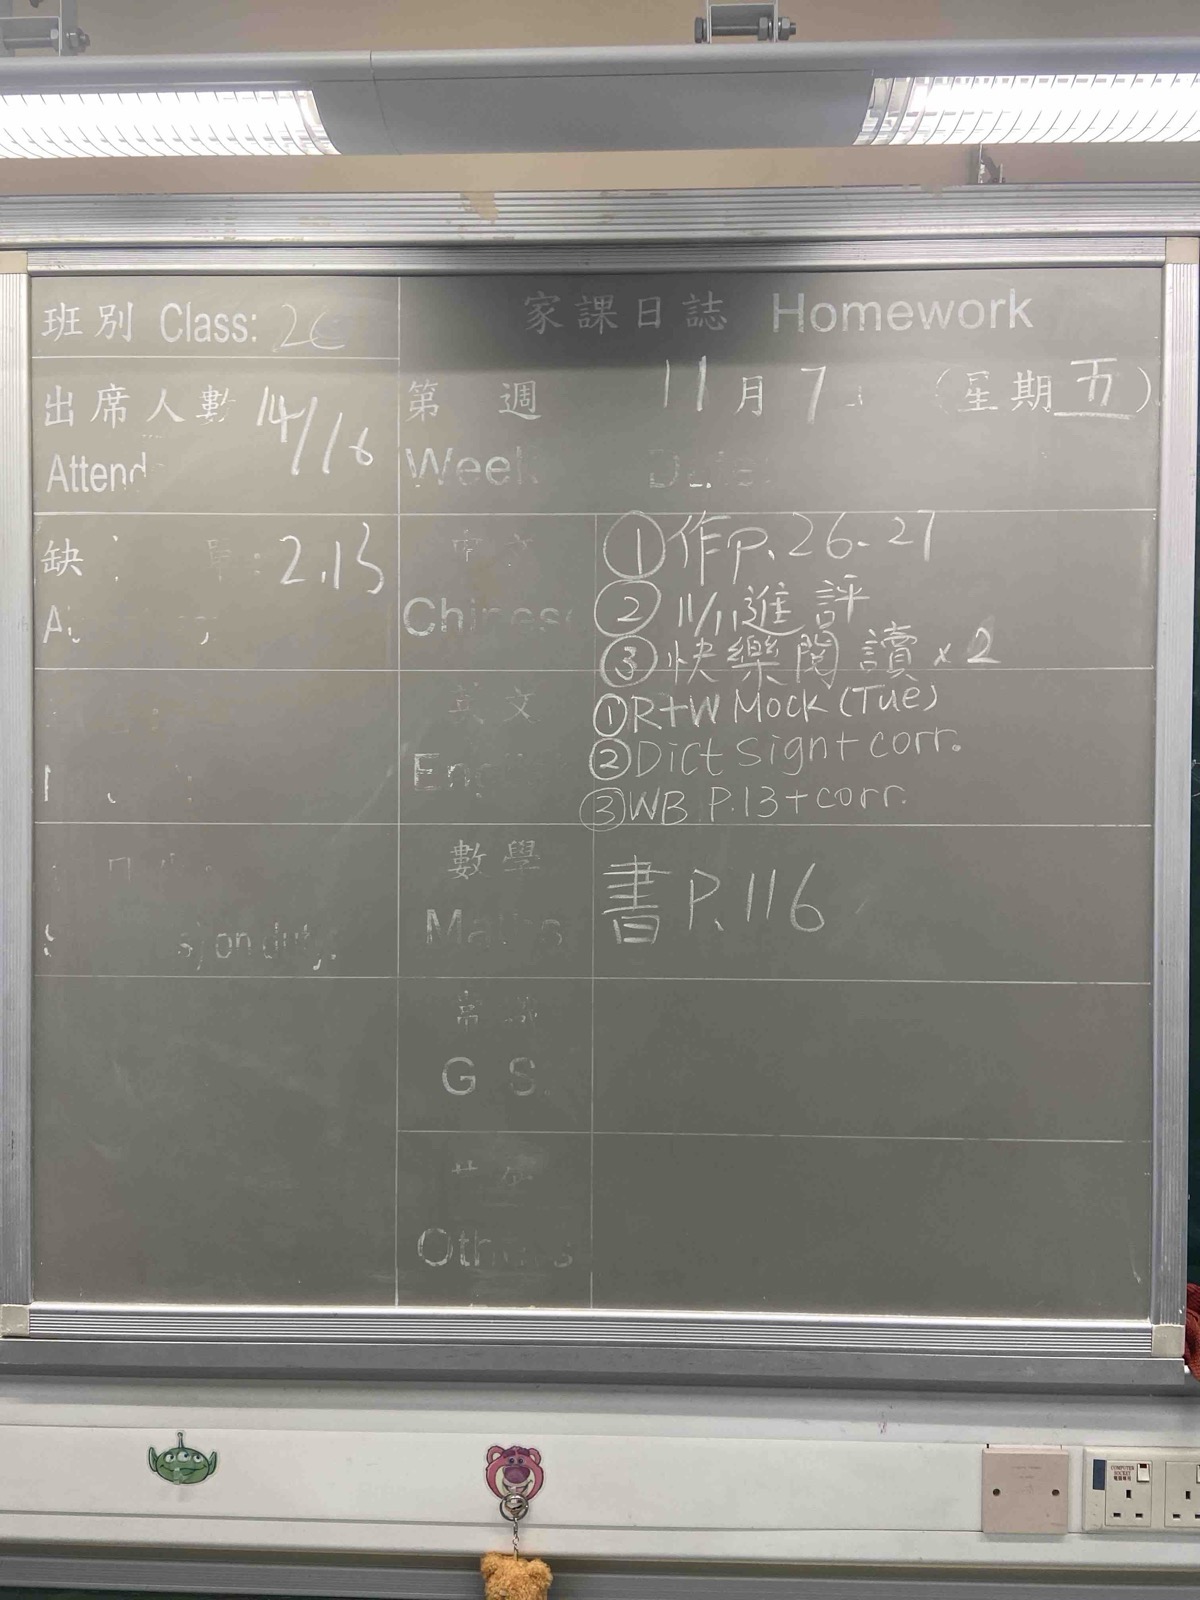 班別 Class: 2C
家課日誌 Homework
出席人數 14/16
Attend
第 週 11月7 (星期五)
Week Date:
缺 : 2.13
中文
Chinese
①作P.26-27
②11/11進評
③快樂閱讀x2
英文
Eng
①R+W Mock (Tue)
②Dict sign + corr.
③WB P.13 + corr.
數學
Maths
書P.116
s) on duty:
常識
G S.
Others
COMPUTER
SOCKET